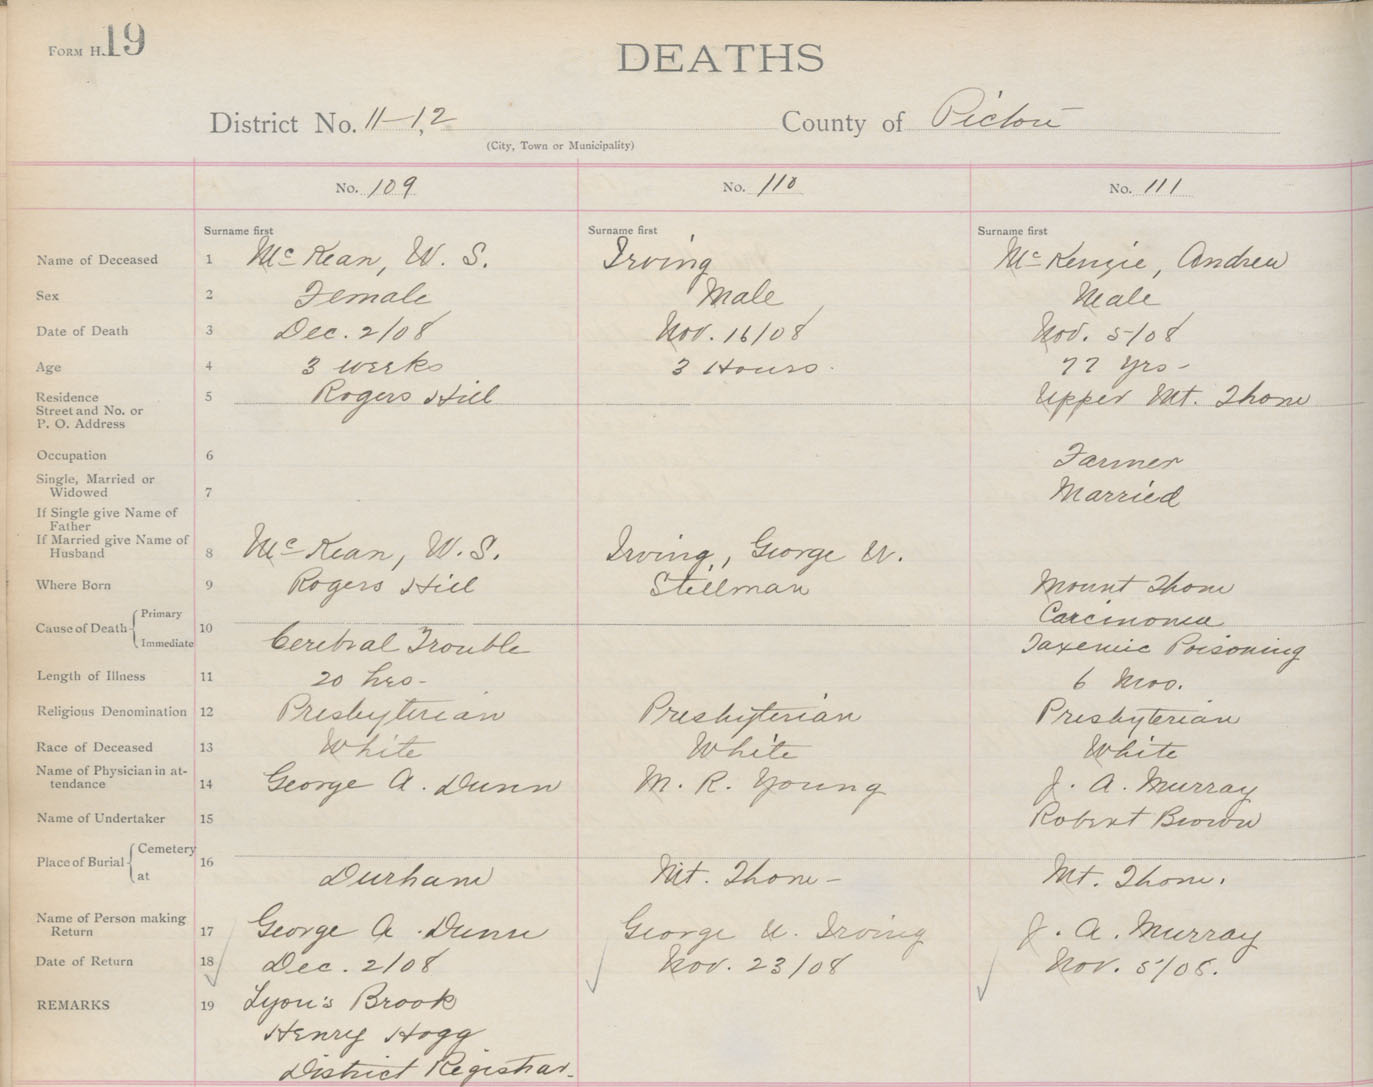 FORM H. 19
DEATHS
District No. 11-1,2 County of Pictou
(City, Town or Municipality)
No. 109 No. 110 No. 111
Surname first Surname first Surname first
Name of Deceased 1 McKean, W. S. Irving McKenzie, Andrew
Sex 2 Female Male Male
Date of Death 3 Dec. 2/08 Nov. 16/08 Nov. 5/08
Age 4 3 weeks 3 Hours. 77 Yrs-
Residence 5 Rogers Hill Upper Mt. Thom
Street and No. or
P. O. Address
Occupation 6 Farmer
Single, Married or
Widowed 7 Married
If Single give Name of
Father
If Married give Name of
Husband 8 McKean, W. S. Irving, George W.
Where Born 9 Rogers Hill Stillman Mount Thom
Cause of Death Primary 10 Carcinoma
Immediate Cerebral Trouble Taxemic Poisoning
Length of Illness 11 20 hrs- 6 Mos.
Religious Denomination 12 Presbyterian Presbyterian Presbyterian
Race of Deceased 13 White White White
Name of Physician in at-
tendance 14 George A. Dunn M. R. Young J. A. Murray
Name of Undertaker 15 Robert Brown
Place of Burial Cemetery 16
at Durham Mt. Thom- Mt. Thom.
Name of Person making
Return 17 George A. Dunn George W. Irving J. A. Murray
Date of Return 18 Dec. 2/08 Nov. 23/08 Nov. 5/08.
REMARKS 19 Lyon's Brook
Henry Hogg
District Registrar-